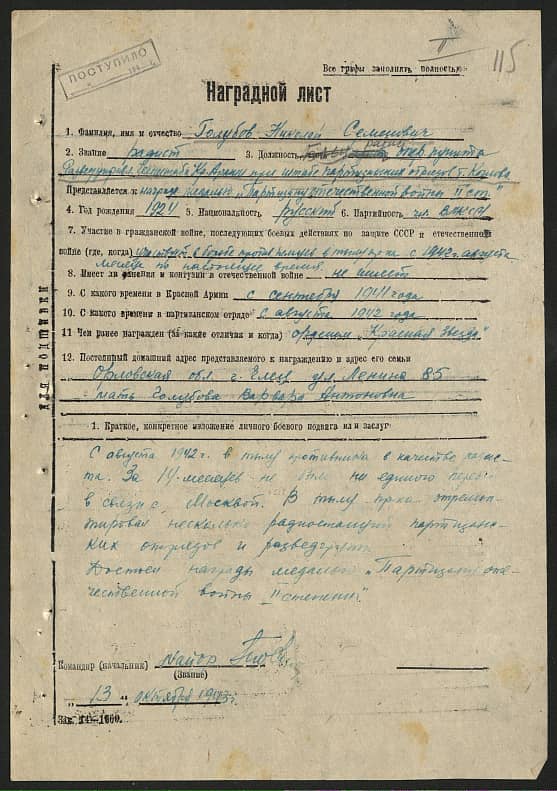 ПОСТУПИЛО
II
115
Все графы заполнять полностью
Наградной лист
1. Фамилия, имя и отчество Голубов Николай Семенович
2. Звание радист 3. Должность пункта
при штабе партизанских отрядов т.
Представляется к награде медалью „Партизану отечественной войны II ст."
4. Год рождения 1921 5. Национальность русский 6. Партийность чл. ВЛКСМ
7. Участие в гражданской войне, последующих боевых действиях по защите СССР и отечественной
войне (где, когда) участвует в борьбе против немцев в тылу врага с 1942 августа
месяца по настоящее время.
8. Имеет ли ранения и контузии в отечественной войне не имеет
9. С какого времени в Красной Армии с сентября 1941 года
10. С какого времени в партизанском отряде с августа 1942 года
11 Чем ранее награжден (за какие отличия и когда) орденом „Красная Звезда"
12. Постоянный домашний адрес представляемого к награждению и адрес его семьи
Орловская обл. г. Елец ул. Ленина 85
мать Голубова Варвара Антоновна
1. Краткое, конкретное изложение личного боевого подвига или заслуг
С августа 1942 г. в тылу противника в качестве радис-
та. За 14 месяцев не было ни единого перерыва
в связи с Москвой. В тылу врага отремон-
тировал несколько радиостанций партизанс-
ких отрядов и разведгрупп.
Достоин награды медалью „Партизану оте-
чественной войны II степени".
Командир (начальник) майор
(Звание)
„ 13 " октября 1943 г.
Зак. 14—1000.
ДЛЯ ПОДШИВКИ